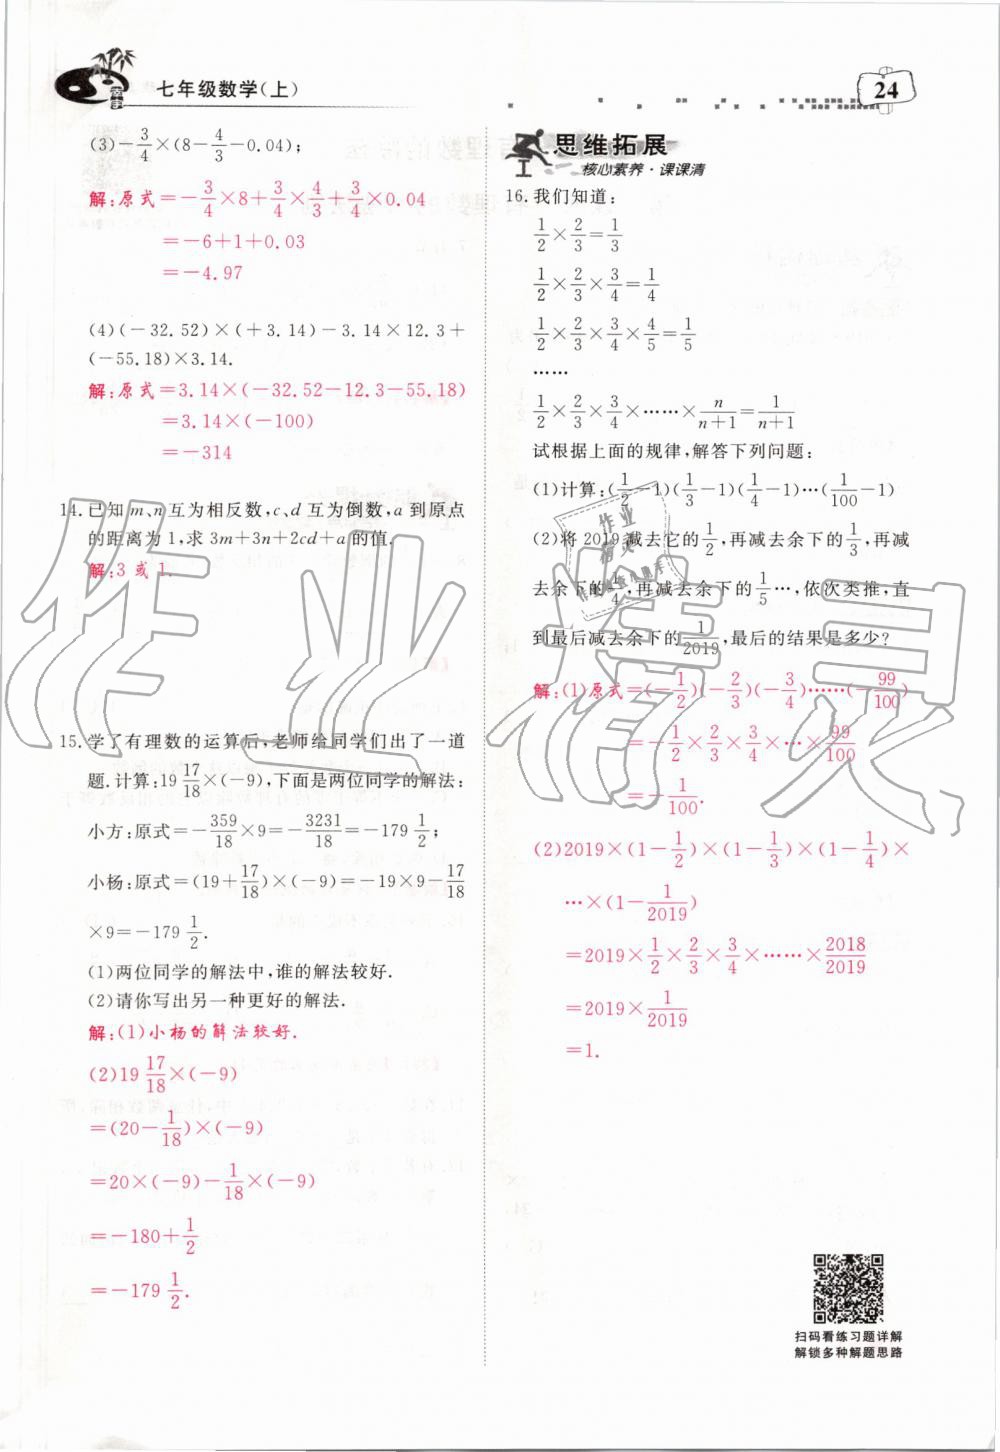 七年级数学(上)
24
(3)-3/4×(8-4/3-0.04);
解:原式=-3/4×8+3/4×4/3+3/4×0.04
=-6+1+0.03
=-4.97
(4)(-32.52)×(+3.14)-3.14×12.3+
(-55.18)×3.14.
解:原式=3.14×(-32.52-12.3-55.18)
=3.14×(-100)
=-314
14.已知m、n互为相反数,c、d互为倒数,a到原点
的距离为1,求3m+3n+2cd+a的值.
解:3或1.
15.学了有理数的运算后,老师给同学们出了一道
题.计算:19 17/18×(-9),下面是两位同学的解法:
小方:原式=-359/18×9=-3231/18=-179 1/2;
小杨:原式=(19+17/18)×(-9)=-19×9-17/18
×9=-179 1/2.
(1)两位同学的解法中,谁的解法较好.
(2)请你写出另一种更好的解法.
解:(1)小杨的解法较好.
(2)19 17/18×(-9)
=(20-1/18)×(-9)
=20×(-9)-1/18×(-9)
=-180+1/2
=-179 1/2.
思维拓展
核心素养·课课清
16.我们知道:
1/2×2/3=1/3
1/2×2/3×3/4=1/4
1/2×2/3×3/4×4/5=1/5
……
1/2×2/3×3/4×……×n/n+1=1/n+1
试根据上面的规律,解答下列问题:
(1)计算:(1/2-1)(1/3-1)(1/4-1)…(1/100-1)
(2)将2019减去它的1/2,再减去余下的1/3,再减
去余下的1/4,再减去余下的1/5…,依次类推,直
到最后减去余下的1/2019,最后的结果是多少?
解:(1)原式=(-1/2)(-2/3)(-3/4)……(-99/100)
=-1/2×2/3×3/4×…×99/100
=-1/100.
(2)2019×(1-1/2)×(1-1/3)×(1-1/4)×
…×(1-1/2019)
=2019×1/2×2/3×3/4×……×2018/2019
=2019×1/2019
=1.
扫码看练习题详解
解锁多种解题思路
作业精灵